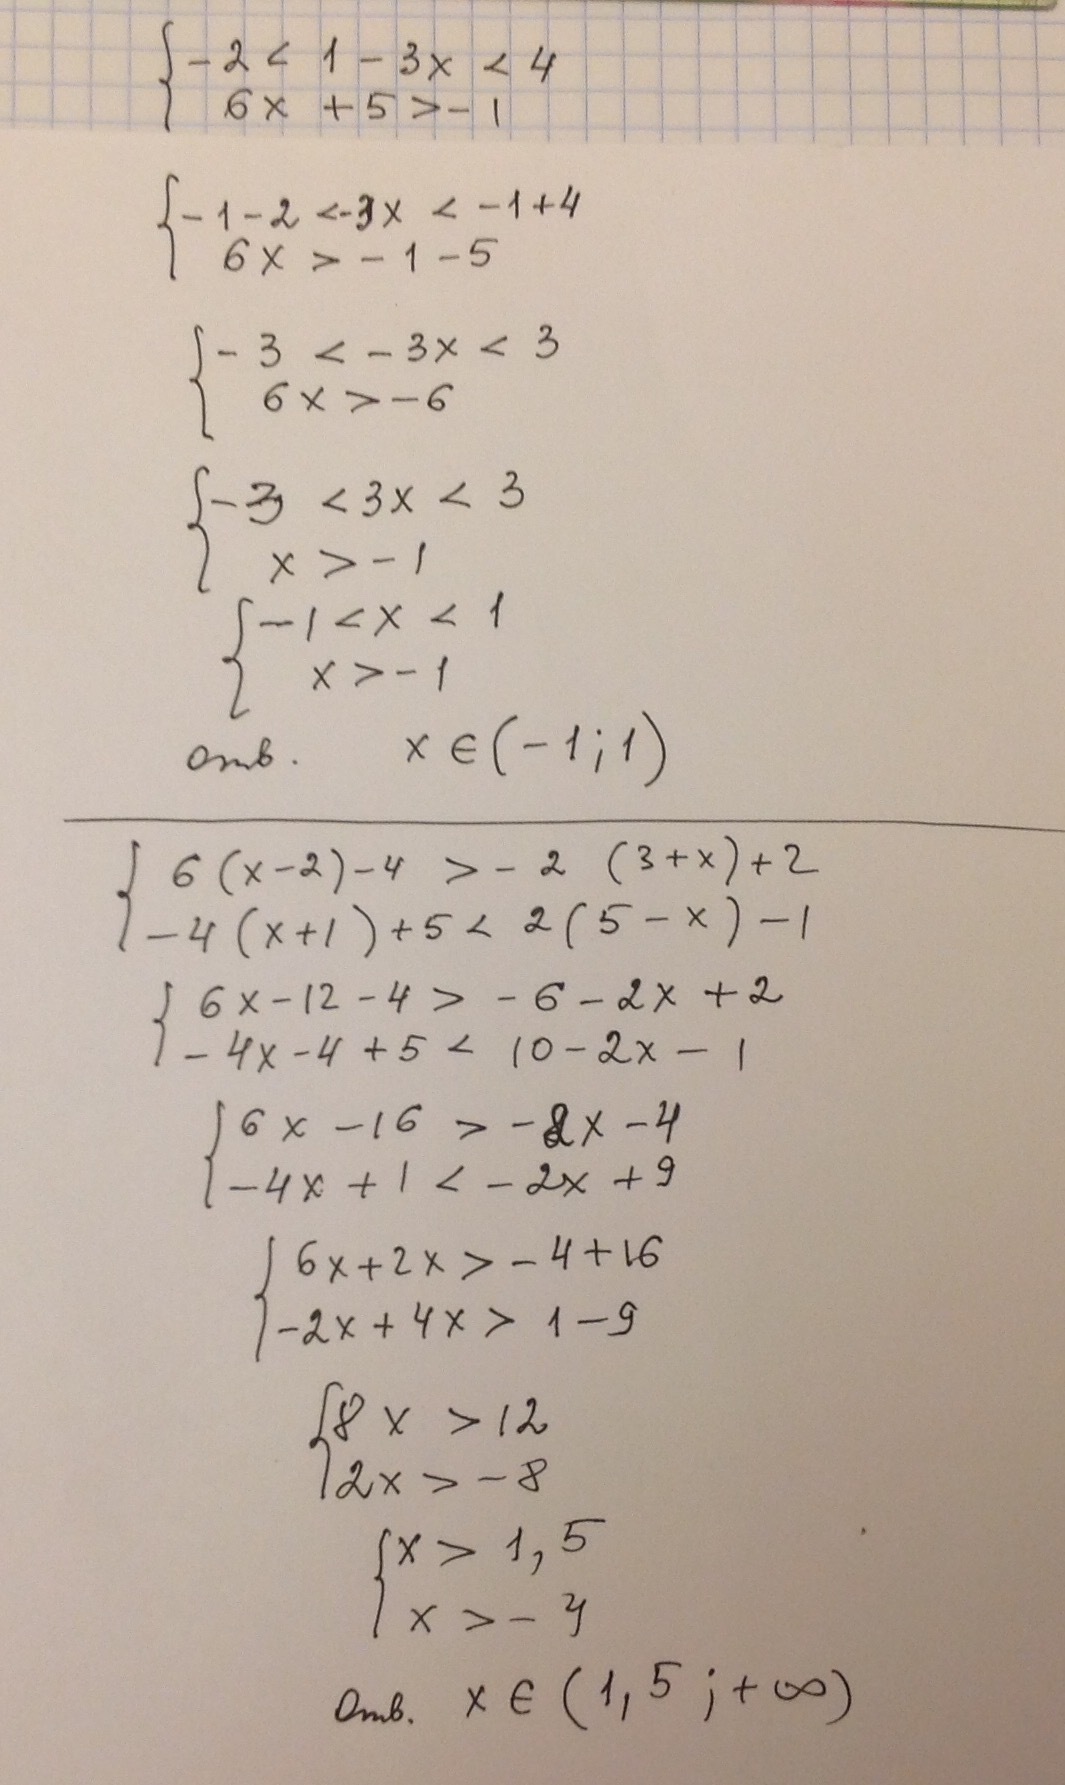 { -2 < 1 - 3x < 4
6x + 5 > -1
{ -1 - 2 < -3x < -1 + 4
6x > -1 - 5
{ -3 < -3x < 3
6x > -6
{ -3 < 3x < 3
x > -1
{ -1 < x < 1
x > -1
Отв. x ∈ (-1; 1)
{ 6(x-2) - 4 > -2 (3+x) + 2
-4(x+1) + 5 < 2(5-x) - 1
{ 6x - 12 - 4 > -6 - 2x + 2
-4x - 4 + 5 < 10 - 2x - 1
{ 6x - 16 > -2x - 4
-4x + 1 < -2x + 9
{ 6x + 2x > -4 + 16
-2x + 4x > 1 - 9
{ 8x > 12
2x > -8
{ x > 1,5
x > -4
Отв. x ∈ (1,5; +∞)